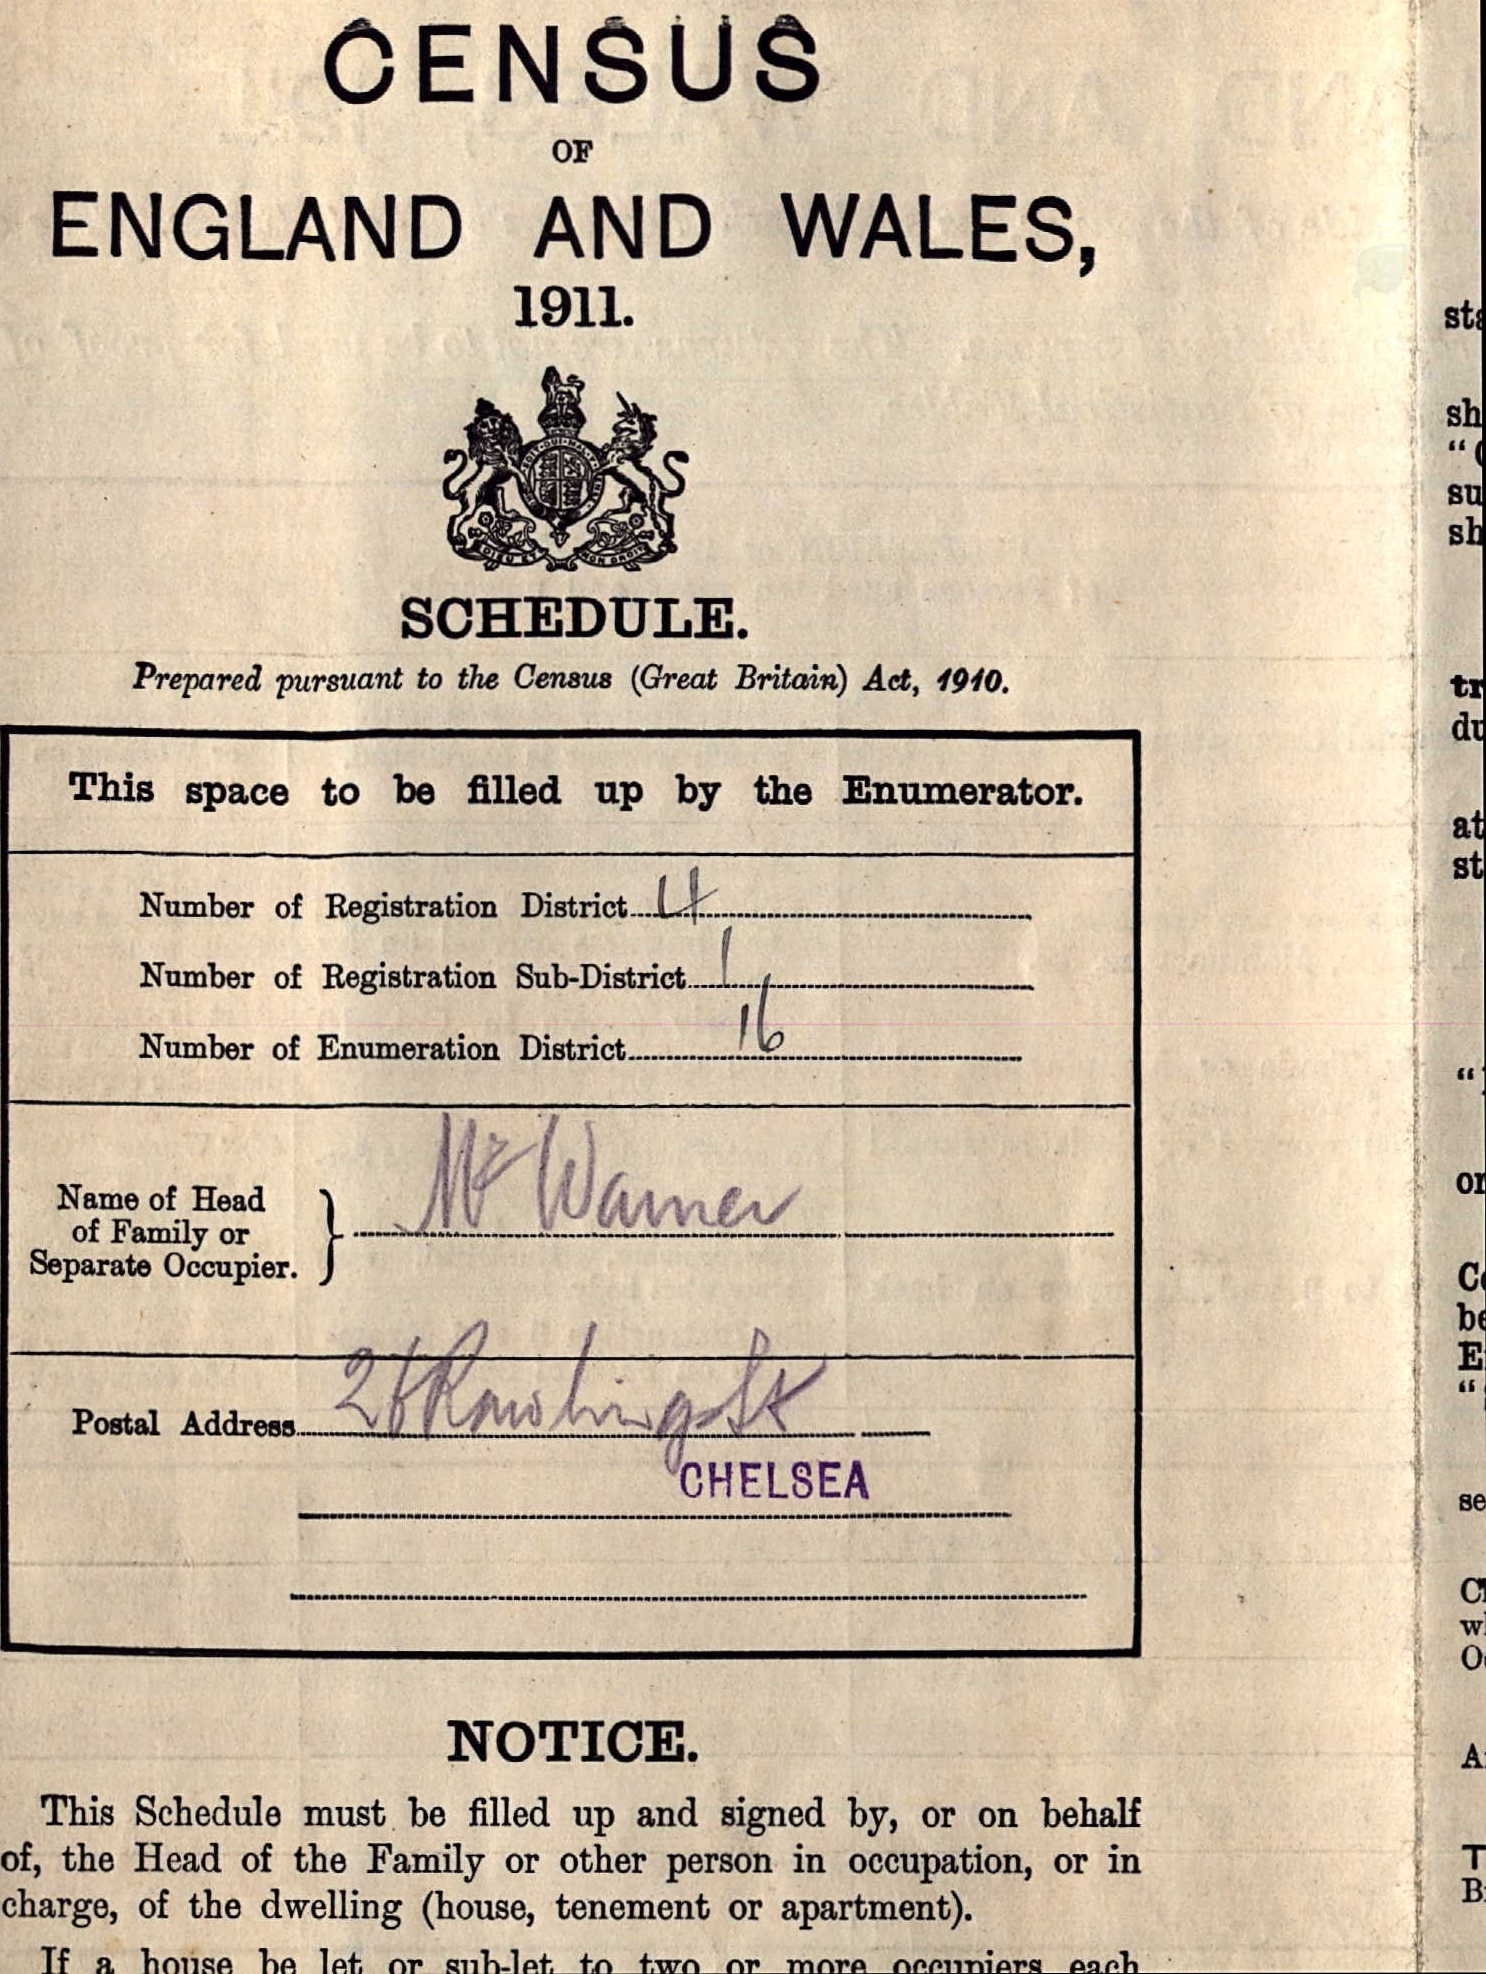 CENSUS
OF
ENGLAND AND WALES,
1911.
SCHEDULE.
Prepared pursuant to the Census (Great Britain) Act, 1910.
This space to be filled up by the Enumerator.
Number of Registration District 4
Number of Registration Sub-District 1
Number of Enumeration District 16
Name of Head
of Family or
Separate Occupier.
Mr Warner
Postal Address Rawlings St
CHELSEA
NOTICE.
This Schedule must be filled up and signed by, or on behalf
of, the Head of the Family or other person in occupation, or in
charge, of the dwelling (house, tenement or apartment).
If a house be let or sub-let to two or more occupiers each